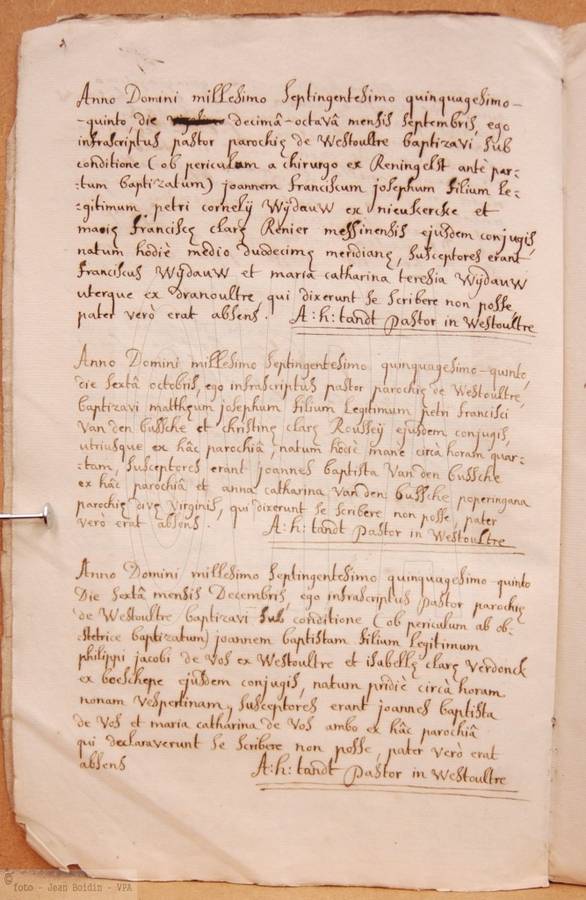 Anno Domini millesimo septingentesimo quinquagesimo-
-quinto die decimâ-octavâ mensis septembris, ego
infrascriptus pastor parochię de Westoultre baptizavi sub
conditione (ob periculum a chirurgo ex Reningelst antè par=
=tum baptizatum) joannem franciscum josephum filium le=
=gitimum petri cornelÿ WÿdauW ex nieukercke et
marię franciscę clarę Renier messinensis ejusdem conjugis,
natum hôdiè medio duodecimę meridianę, susceptores erant
franciscus WÿdauW et maria catharina teresia WÿdauW
uterque ex dranoultre, qui dixerunt se scribere non posse,
pater verò erat absens. A:h: tandt pastor in Westoultre
Anno Domini millesimo septingentesimo quinquagesimo-quinto,
die sextâ octobris, ego infrascriptus pastor parochię de Westoultre,
baptizavi matthęum josephum filium Legitimum petri francisci
Van den bussche et christinę clarę Roussey ejusdem conjugis,
utriusque ex hâc parochiâ, natum hôdiè mane circà horam quar=
=tam, susceptores erant joannes baptista Van den bussche
ex hâc parochiâ et anna catharina Van den bussche poperingana
parochię divę Virginis, qui dixerunt se scribere non posse, pater
verò erat absens. A:h: tandt pastor in Westoultre
Anno Domini millesimo septingentesimo quinquagesimo-quinto
Die sextâ mensis Decembris, ego infrascriptus pastor parochię
de Westoultre baptizavi sub conditione (ob periculum ab ob=
stetrice baptizatum) joannem baptistam filium legitimum
philippi jacobi de Vos ex Westoultre et isabellę clarę Verdonck
ex boeschepe ejusdem conjugis, natum pridiè circà horam
nonam Vespertinam, susceptores erant joannes baptista
de Vos et maria catharina de Vos ambo ex hâc parochiâ
qui declaraverunt se scribere non posse, pater verò erat
absens A:h: tandt pastor in Westoultre
© foto - Jean Boidin - VPA